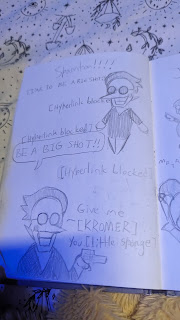 Spamton!!!!
[Hyperlink blocked]
[Hyperlink blocked]
BE A BIG SHOT!!
[Hyperlink blocked]
Give me
[KROMER]
You [little Sponge]